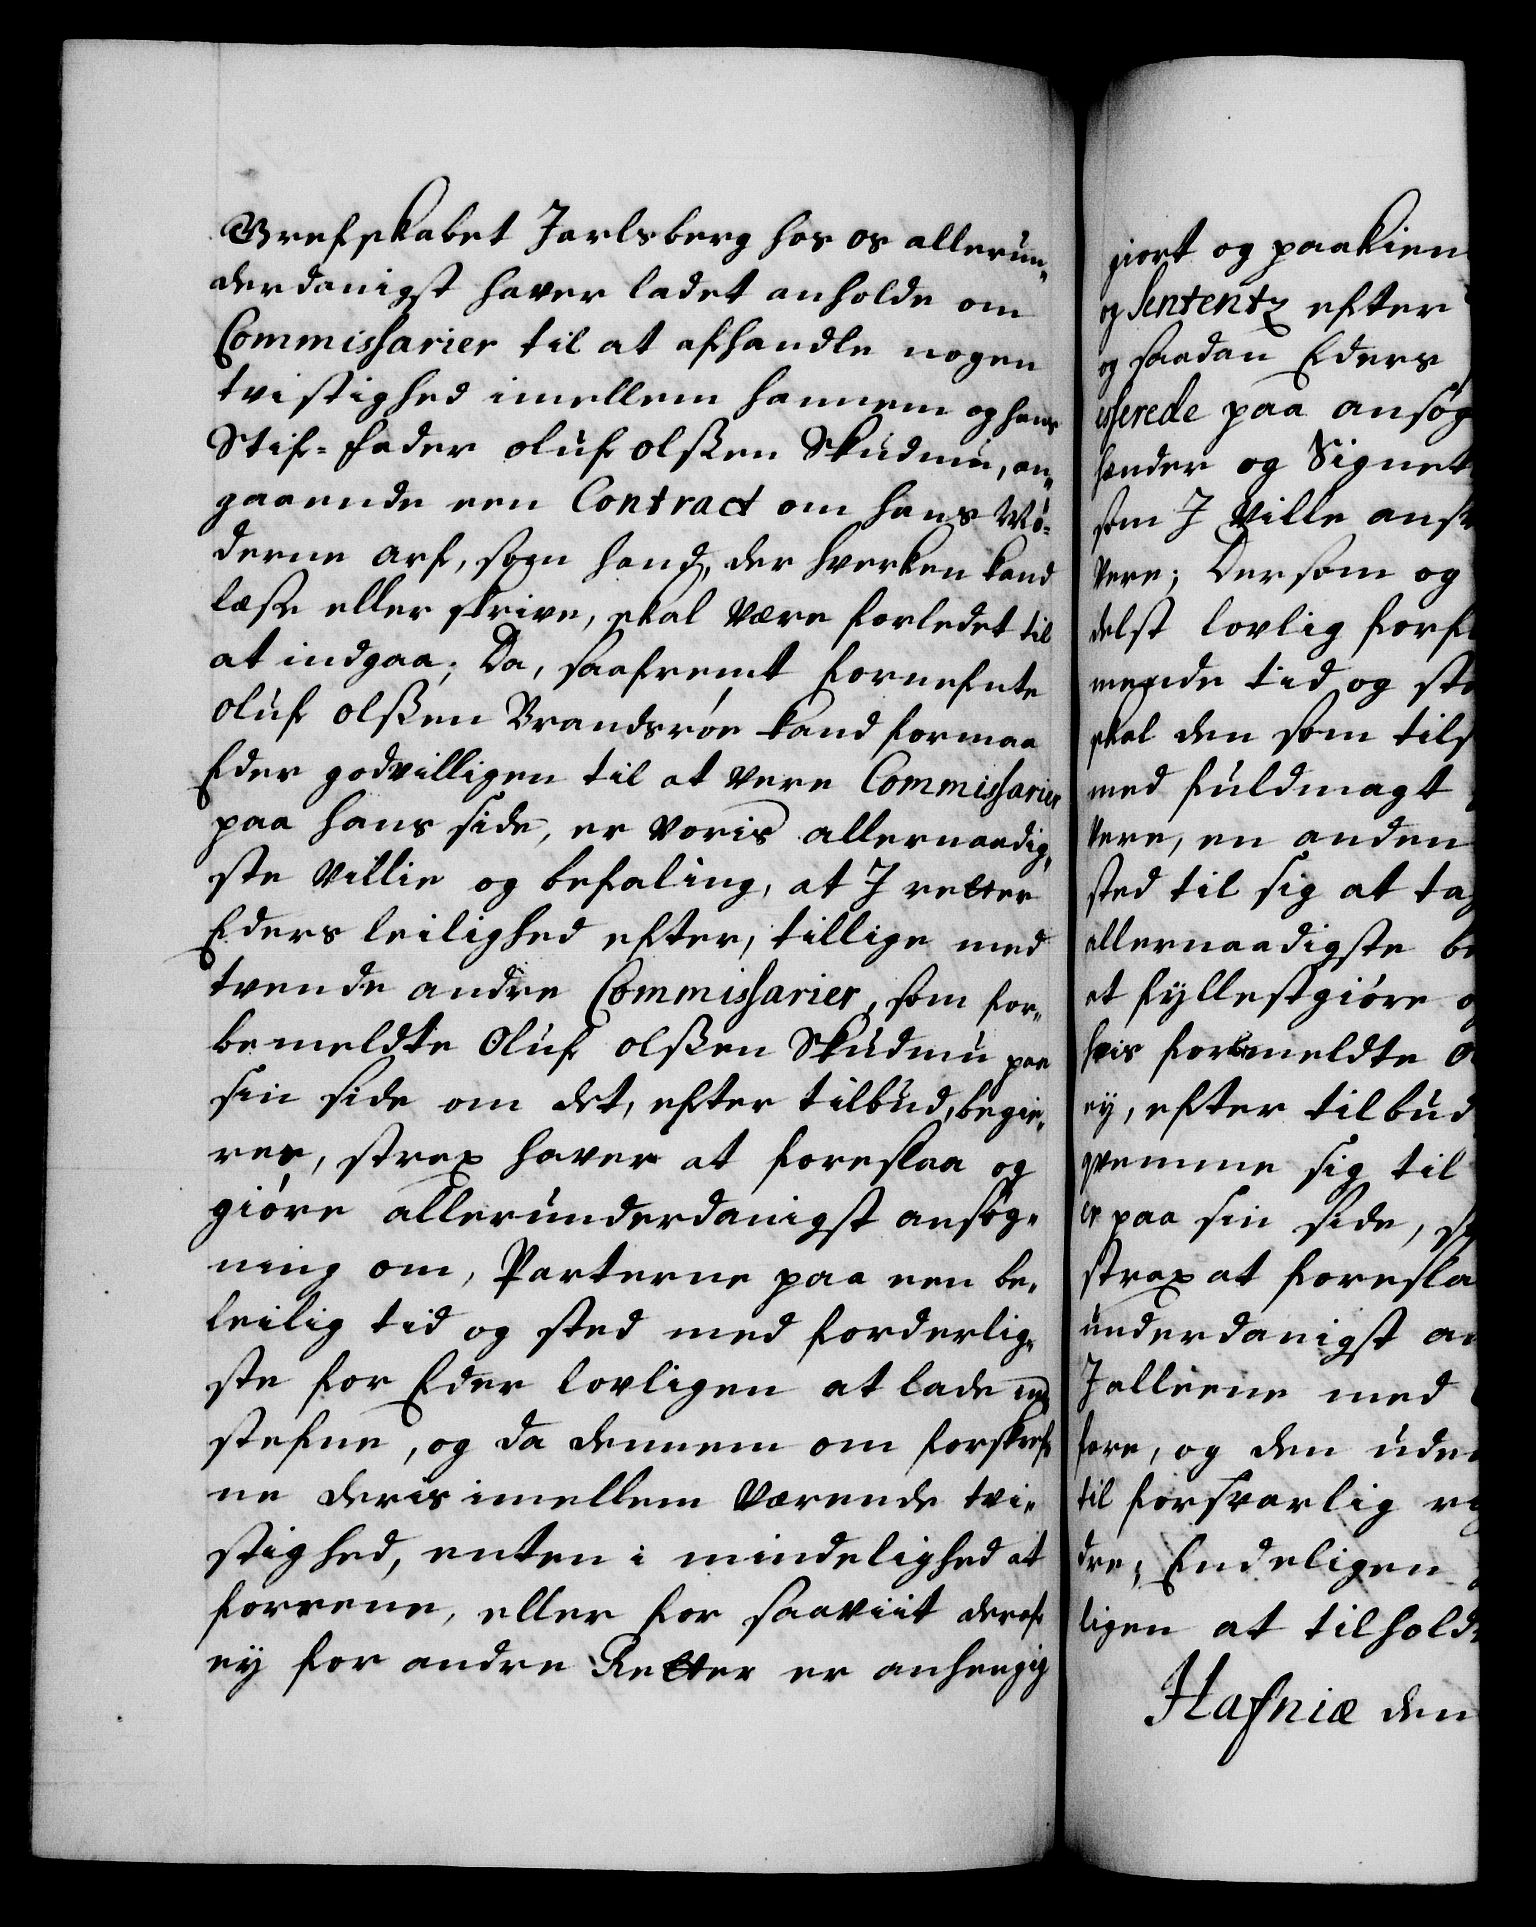 Grefskabet Jarlsberg hos os allerun„
derdanigst haver ladet anholde om
Commissarier til at afhandle nogen
tvistighed imellem hannem og hans
Stif-fader Oluf Olssen Skudmu, an„
gaaende een Contract om hans Mø„
derne arf, som hand, der hverken kand
læse eller skrive, skal være forledet til
at indgaa; Da, saafremt fornefnte
Oluf Olssen Brandsrøe kand formaa
Eder godvilligen til at vere Commissarier
paa hans side, er voris allernaadig„
ste villie og befaling, at J retter
Eders leilighed efter, tillige med
tvende andre Commissarier, som for„
bemeldte Oluf Olssen Skudmu paa
sin side om det, efter tilbud, begie„
res, strax haver at foreslaa og
giøre allerunderdanigst ansøg„
ning om, Parterne paa een be„
leilig tid og sted med forderlig„
ste for Eder lovligen at lade
stefne, og da dennem om forskref„
ne deris imellem værende tvi„
stighed, enten i mindelighed at
foreene, eller for saaviit deraf
ey for andre Retter er anhengig
giort og paakien
og Sententz efter
og saadan Eders
isserede paa ansøg
hænder og Signet
som J ville ansv
vere; Dersom og
delst lovlig forf
mende tid og ste
skal den som tils
med fuldmagt
vere, en anden
sted til sig at tag
allernaadigste be
et fyllestgiøre o
hvis forbemeldte O
ey, efter tilbud
qvemme sig til
er paa sin side, s
strax at foresla
underdanigst an
J alleene med
fore, og den uden
til forsvarlig
dre; Endeligen
ligen at tilhold
Hafniæ den